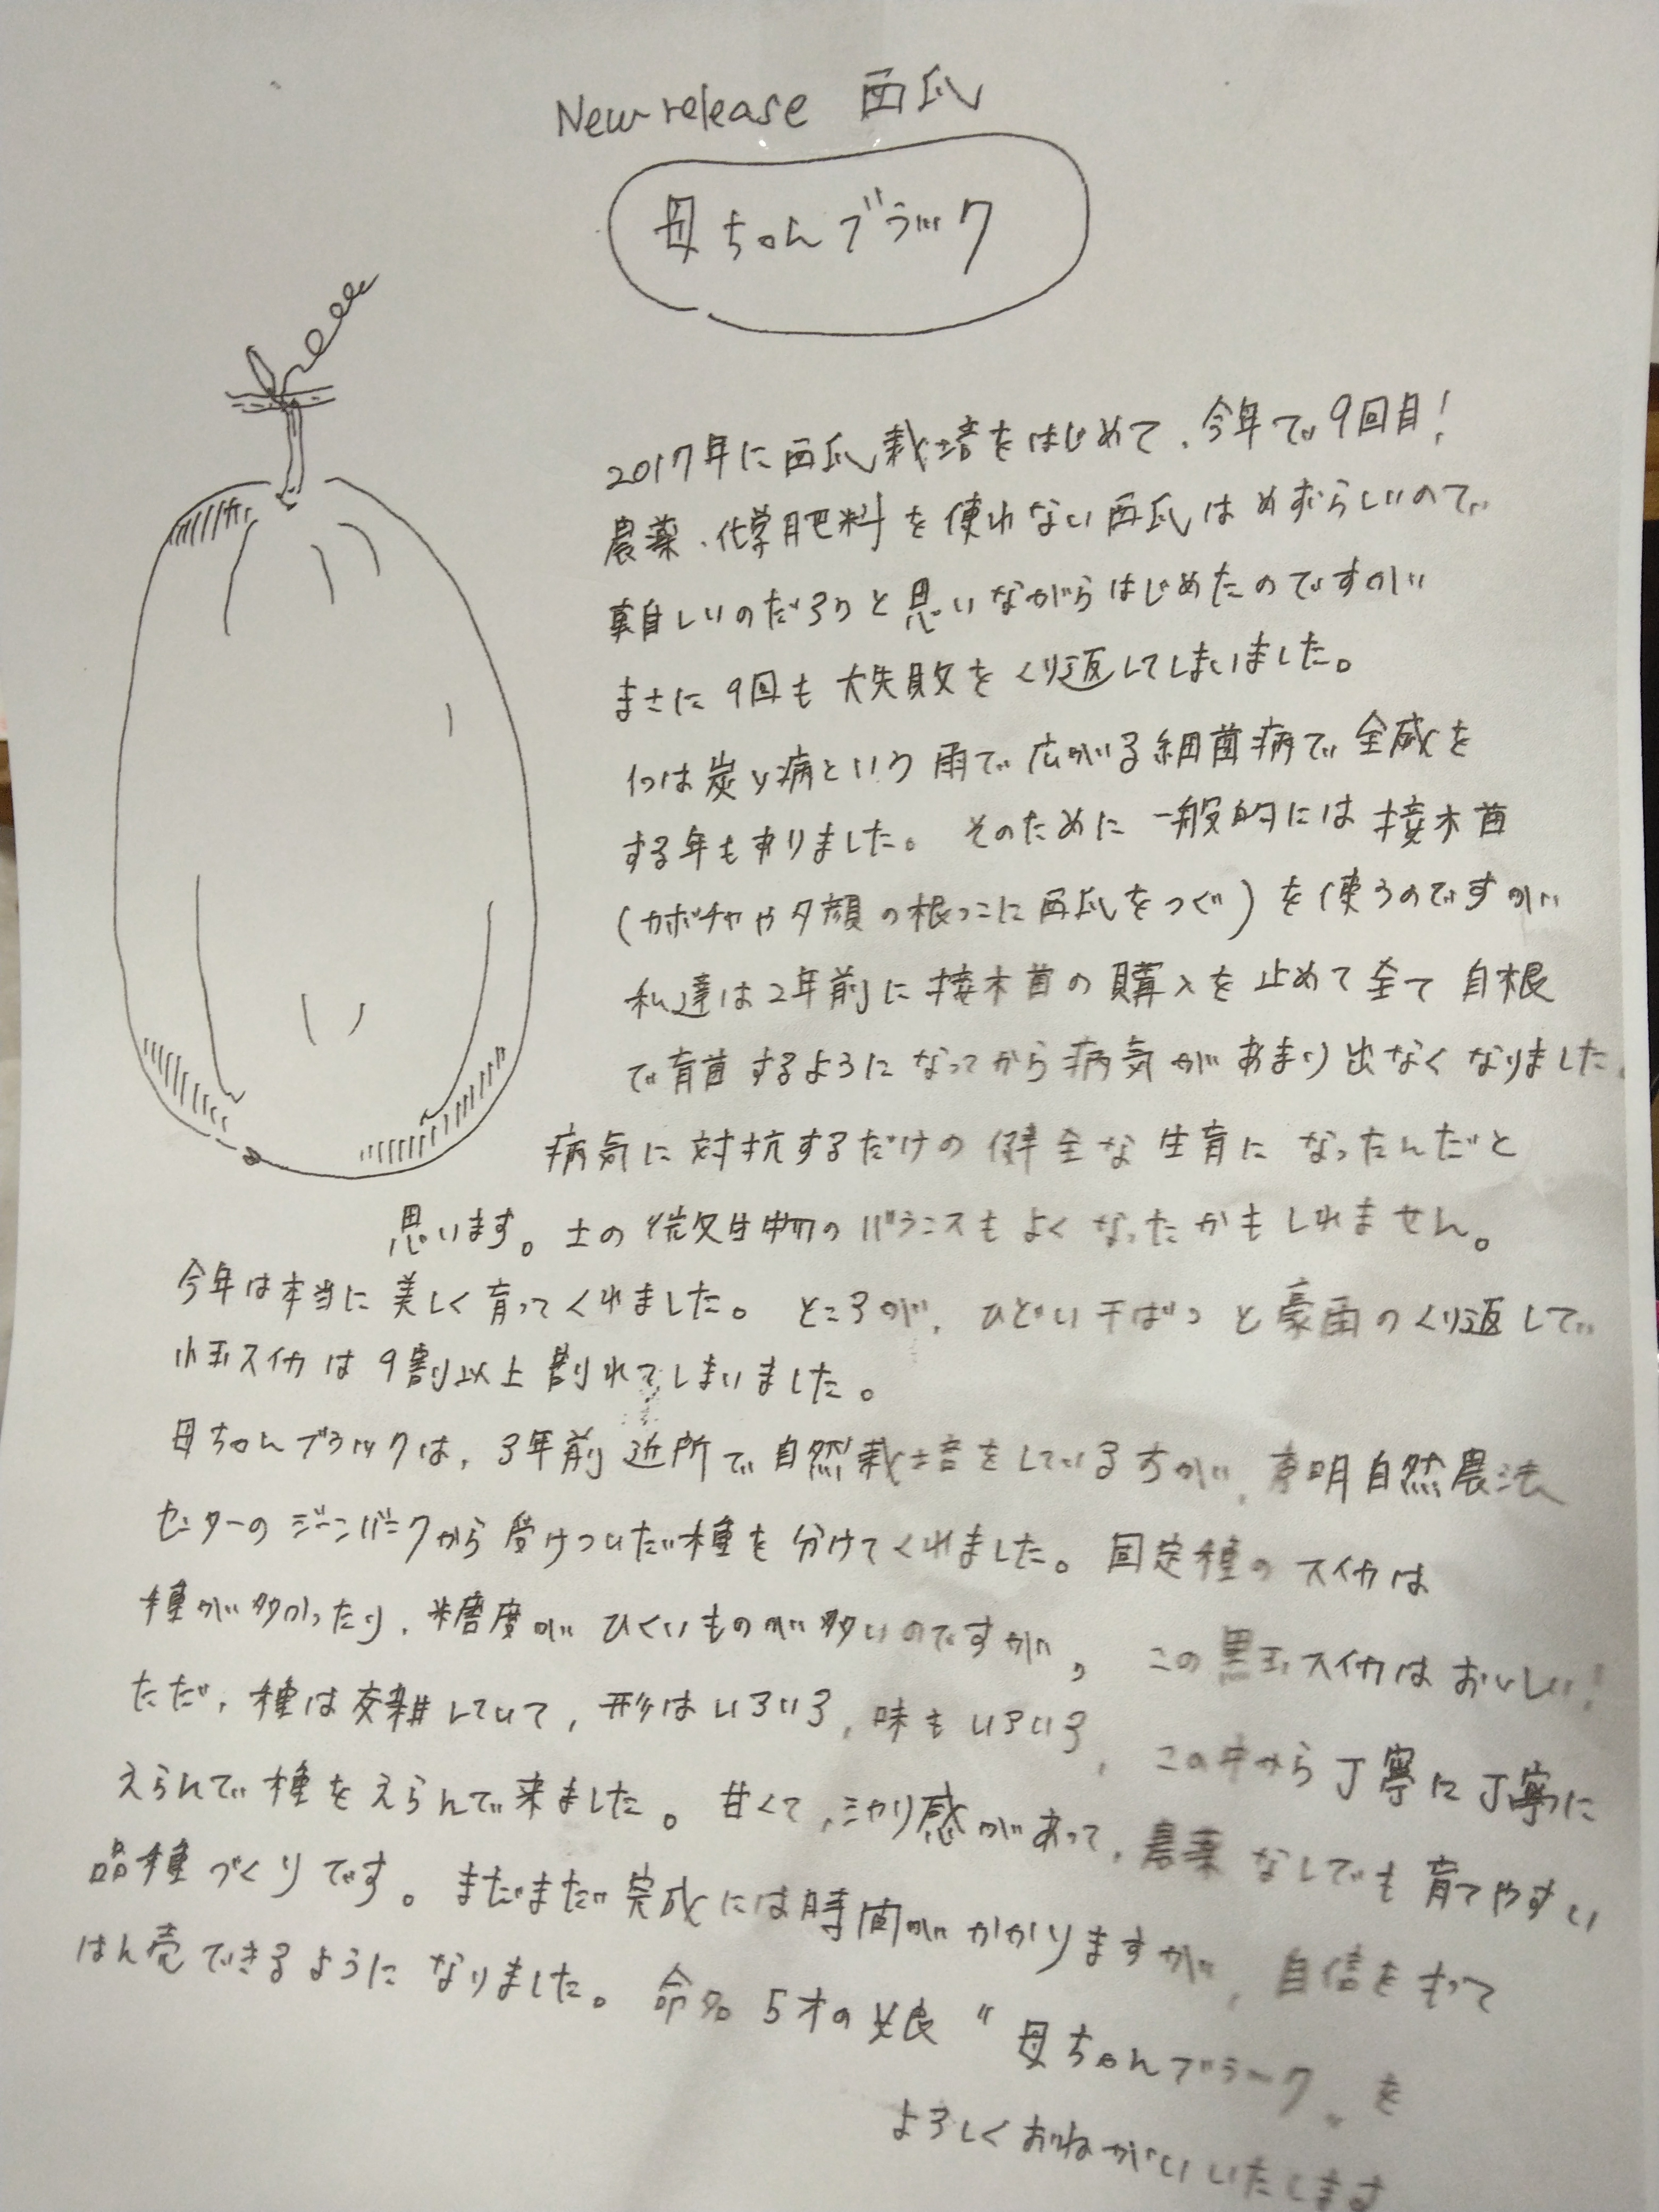 New release 西瓜
母ちゃんブラック
2017年に西瓜栽培をはじめて、今年で9回目!
農薬、化学肥料を使わない西瓜はめずらしいので
難しいのだろうと思いながらはじめたのですが
まさに9回も大失敗をくり返してしまいました。
1つは炭ソ病という雨で広がる細菌病で全滅を
する年も有りました。そのために一般的には接木苗
(カボチャや夕顔の根っこに西瓜をつぐ)を使うのですが
私達は2年前に接木苗の購入を止めて全て自根
で育苗するようになってから病気があまり出なくなりました。
病気に対抗するだけの健全な生育になったんだと
思います。土の微生物のバランスもよくなったかもしれません。
今年は本当に美しく育ってくれました。ところが、ひどい干ばつと豪雨のくり返しで
小玉スイカは9割以上割れてしまいました。
母ちゃんブラックは、3年前近所で自然栽培をしているが、明自然農法
センターのジーンバンクから受けついだ種を分けてくれました。固定種のスイカは
種が多かったり、糖度がひくいものが多いのですが、この黒玉スイカはおいしい!
ただ、種は交雑していて、形はいろいろ、味もいろいろ、この中から丁寧に丁寧に
えらんで種をえらんで来ました。甘くて、シャリ感があって、農薬なしでも育てやすい
品種づくりです。まだまだ完成には時間がかかりますが、自信をもって
はん売できるようになりました。命名5才の娘"母ちゃんブラーク"を
よろしくおねがいいたします